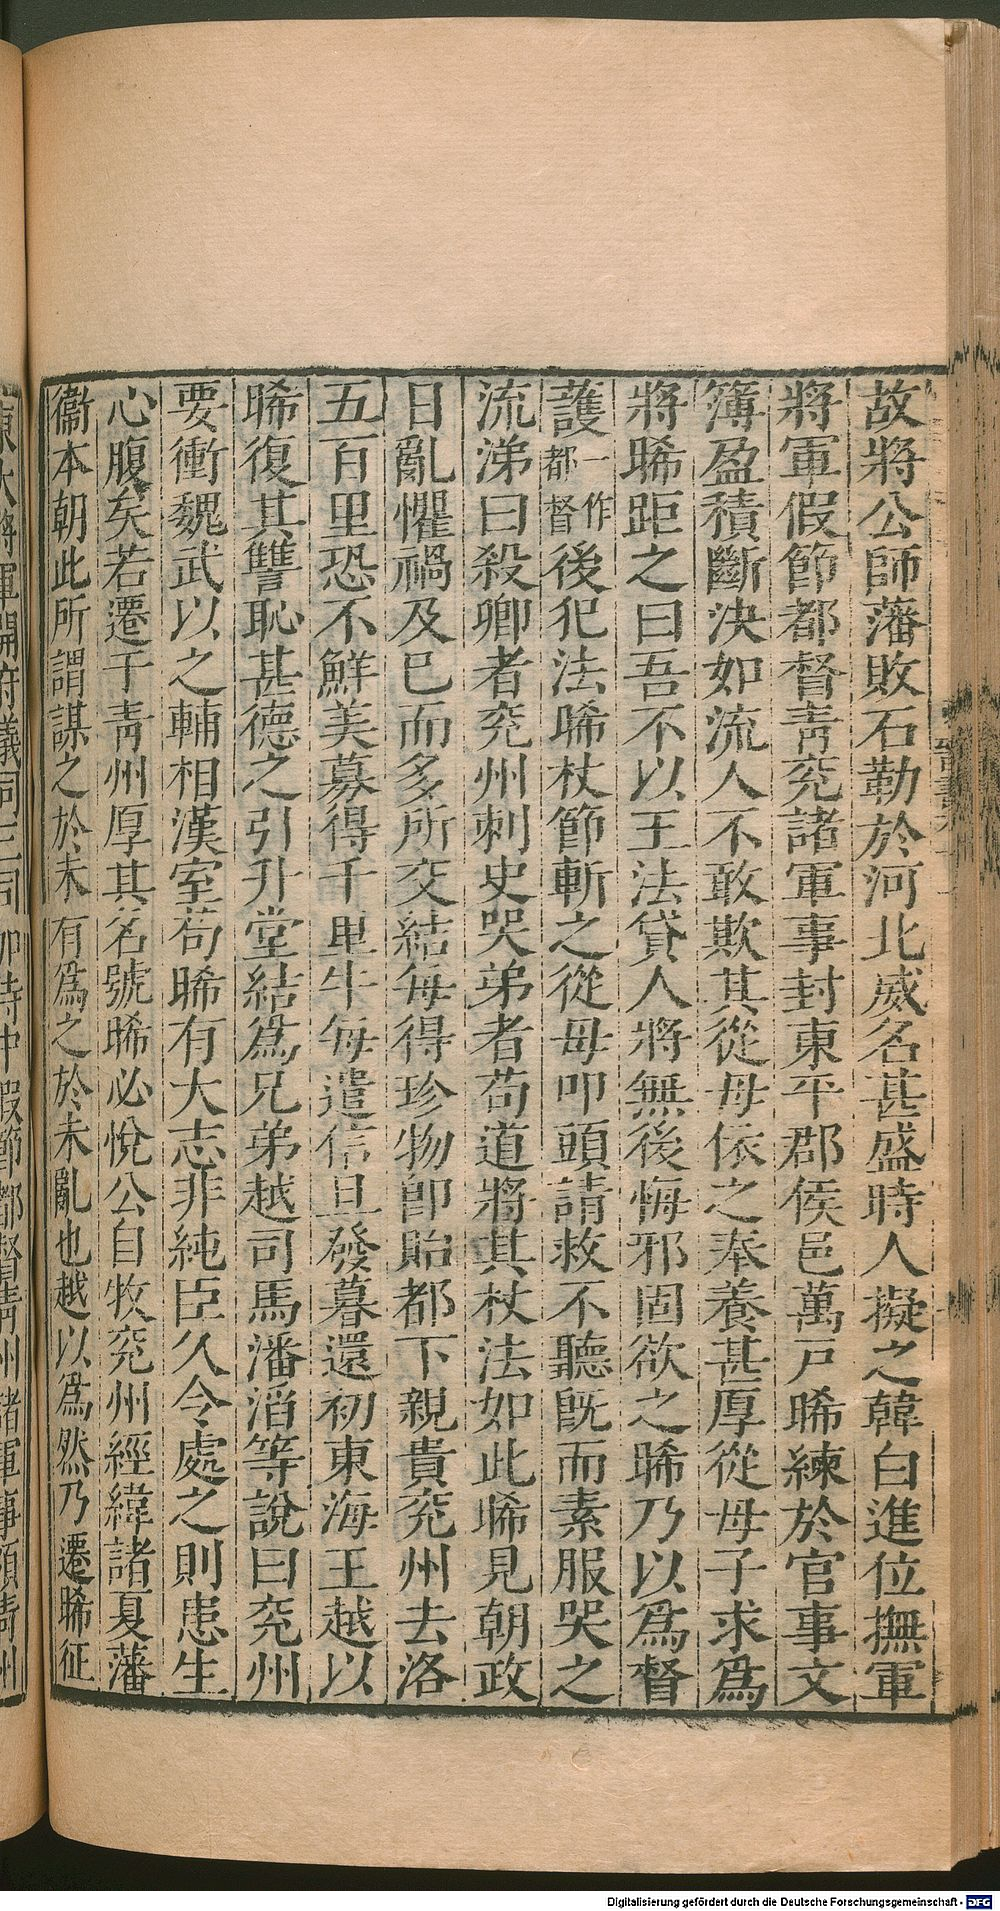 故將公師藩敗石勒於河北威名甚盛時人擬之韓白進位撫軍
將軍假節都督青兖諸軍事封東平郡侯邑萬戸晞練於官事文
簿盈積斷決如流人不敢欺其從母依之奉養甚厚從母子求爲
將晞距之曰吾不以王法貸人將無後悔邪固欲之晞乃以爲督
護一作都督後犯法晞杖節斬之從母叩頭請救不聽旣而素服哭之
流涕曰殺卿者兖州刺史哭弟者苟道將其杖法如此晞見朝政
日亂懼禍及已而多所交結每得珍物卽貽都下親貴兖州去洛
五百里恐不鮮美募得千里牛每遣信旦發暮還初東海王越以
晞復其讐恥甚德之引升堂結爲兄弟越司馬潘滔等說曰兖州
要衝魏武以之輔相漢室苟晞有大志非純臣久令處之則患生
心腹矣若遷于青州厚其名號晞必悅公自牧兖州經緯諸夏藩
衞本朝此所謂謀之於未有爲之於未亂也越以爲然乃遷晞征
東大將軍開府儀同三司加侍中假節都督青州諸軍事領青州
Digitalisierung gefördert durch die Deutsche Forschungsgemeinschaft - DFG